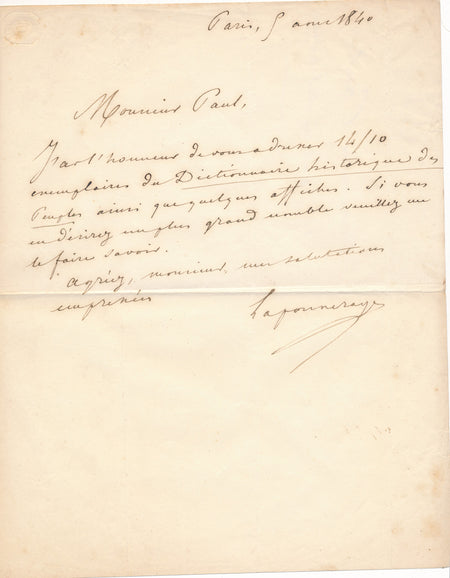 Paris, 5 aout 1840
Monsieur Paul,
J'ai l'honneur de vous adresser 14/10
exemplaires du Dictionnaire historique des
Peuples ainsi que quelques affiches. Si vous
en désirez un plus grand nombre veuillez me
le faire savoir.
Agréez, monsieur, mes salutations
empressées
Laponneraye